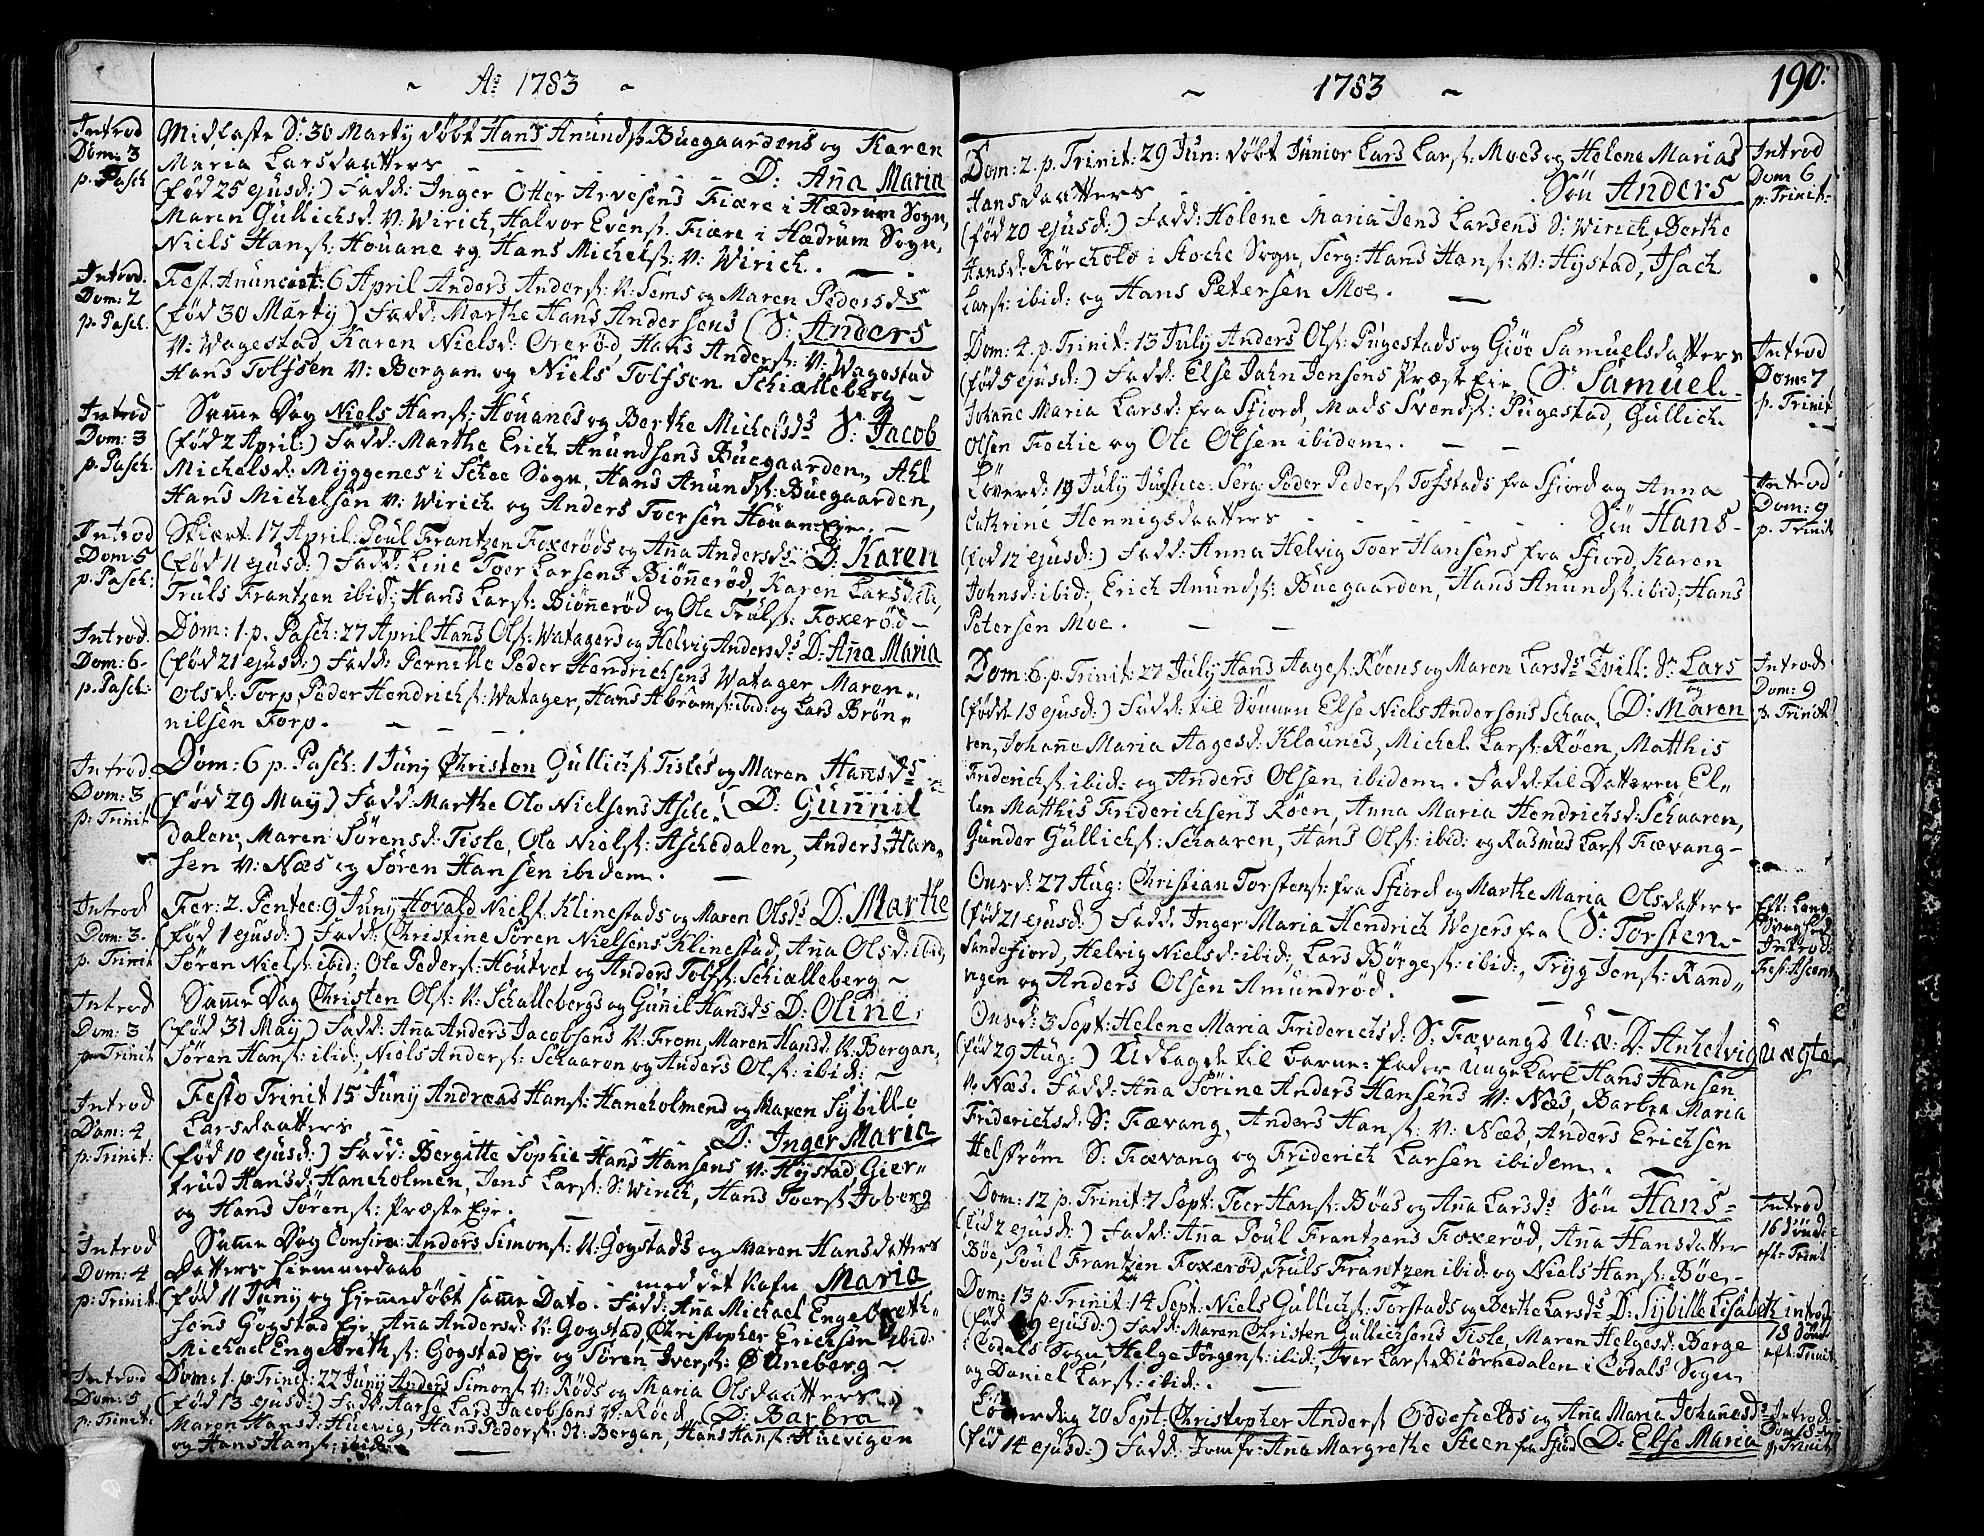 ~ Aº 1783 ~
Introd
Dom: 3
p. Pasch
Midfaste S: 30 Marty døbt Hans Anundsⱡ. Buegaardens og Karen
Maria Larsdaatters - - - D: Aña Maria
(fød 25 ejusd:) Fadd: Inger Otter Arvesens Fiære i Hædrum Sogn,
Maren Gullichsd. N: Wirich, Halvor Evens: Fiære i Hædrum Sogn,
Niels Hans: Houane og Hans Michels: N: Wirich.
Introd.
Dom: 2
p. Pasch:
Fest. Anunciat: 6 April Anders Anders: N: Sems og Maren Pedersds
(fød 30 Marty) Fadd: Marthe Hans Andersens (S: Anders
N: Wagestad Karen Nielsd: Orerød, Hans Anders: N: Wagestad
Hans Tolfsen N: Bergan og Niels Tolfsen Schiælleberg -
Introd
Dom: 3
p. Pasch.
Saṁe Dag Niels Hans: Houanes og Berthe Michelsds S: Jacob
(fød 2 April:) Fadd: Marthe Erich Anundsens Buegaarden, Ahl
Michelsd: Myggenes i Schee Sogn, Hans Anunds: Buegaarden,
Hans Michelsen N: Wirich og Anders Toersen Houan Eje. -
Introd
Dom: 5
p. Pasch:
Skiært. 17 April. Poul Frantzen Foxerøds og Aña Andersds D. Karen
(fød 11 ejusd:) Fadd: Line Toer Larsens Biøñerød, Karen Larsd ibid;
Truls Frantzen ibid; Hans Lars: Biøñerød og Ole Truls: Foxerød -
Introd.
Dom: 6-
p. Pasch:
Dom: 1. p. Pasch: 27 April Hans Ols: Watagers og Helvig Andersds D: Aña Maria
(fød 21 ejusd:) Fadd: Pernille Peder Hendrichsens Watager Maren
Olsd: Torp, Peder Hendrichs: Watager, Hans Abrams: ibid: og Lars Brøn„
nilsen Torp. - - -
Introd.
Dom: 3
p: Trinit
Dom: 6 p. Pasch: 1 Juny Christen Gullichs: Tisles og Maren Hansds
(fød 29 May) Fadd: Marthe Ole Nielsens Asche„ (D: Guñil
dalen, Maren Sørensd: Tisle, Ole Niels: Aschedalen, Anders Han„
sen N: Næs og Søren Hansen ibidem. -
Introd
Dom: 3-
p. Trinit
Fer: 2. Pentec: 9 Juny Hovald Niels: Klinestads og Maren Olsds D: Marthe
(fød 1 ejusd:) Fadd: Christine Søren Nielsens Klinestad, Aña Olsd: ibid,
Søren Niels: ibid; Ole Peders: Houtvet og Anders Tolfs: Schiælleberg -
Introd
Dom: 3
p. Trinit
Saṁe Dag Christen Ols: N: Schallebergs og Guñil Hansds D: Oline,
(fød 31 May) Fadd: Aña Anders Jacobsens N: From, Maren Hansd: N: Bergan,
Søren Hans: ibid; Niels Anders: Schaaren og Anders Ols: ibid: -
Introd
Dom: 4
p: Trinit:
Festo Trinit 15 Juny Andreas Hans: Haneholmens og Maren Sybille
Larsdaatters - - D: Inger Maria
(fød 10 ejusd:) Fadd: Bergitte Sophie Hans Hansens N: Hystad, Gier„
trud Hansd; Haneholmen, Jens Lars: S: Wirich, Hans Toers: Joberg
og Hans Sørens: Præste Eje. -
Introd
Dom: 4
p: Trinit.
Saṁe Dag Anders Simons: N: Gogstads og Maren Hansdatters
Datters hiemmedaab med det Nafn Maria
(fød 11 Juny og hjeṁedøbt saṁe Dato. Fadd: Aña Michael Engebreth„
sens Gogstad Eje, Aña Andersd: N: Gogstad, Christopher Erichsen ibid:
Michael Engebreths: Gogstad Eje og Søren Ivers: Ø Uneberg -
Introd
Dom: 5
p: Trinit:
Dom: 1. p. Trinit: 22 Juny Anders Simons: N: Røds og Maria Olsdaatters
(fød 13 ejusd:) Fadd: Aarse Lars Jacobsens N: Røed (D: Barbra
Maren Hansd: Huevig, Hans Peders: N: Bergan, Hans Hans: Huevigen
og Hans Hans: ibid: -
~ 1783 ~
190:
Dom: 2. p. Trinit: 29 Jun: døbt Junior Lars Lars: Moes og Helene Marias
Hansdaatters - - - Søn Anders
(fød 20 ejusd:) Fadd: Helene Maria Jens Larsens S: Wirich, Berthe
Hansd: Rørchold i Stoche Sogn, Serg: Hans Hans: N: Hystad, Isach
Lars: ibid: og Hans Petersen Moe. -
Introd
Dom 6
p. Trinit:
Dom: 4. p. Trinit: 13 July Anders Ols: Pugestads og Giøe Samuelsdatters
(fød 5 ejusd:) Fadd: Else Jahn Jensens Præste Eje, (S: Samuel.
Johañe Maria Larsd: fra Sfiord, Mads Svends: Pugestad, Gullich
Olsen Fochie og Ole Olsen ibidem. - -
Introd
Dom: 7
p. Trinit
Løverd: 19 July Justice: Serg: Peder Peders: Tofstads fra Sfiord og Anna
Cathrine Hennigsdaatters - - - Søn Hans -
(fød 12 ejusd:) Fadd: Anna Helvig Toer Hansens fra Sfiord, Karen
Johnsd: ibid:, Erich Anunds: Buegaarden, Hans Anunds: ibid; Hans
Petersen Moe. - -
Introd
Dom: 9
p. Trinit
Dom: 6. p. Trinit: 27 July Hans Aages: Røens og Maren Larsds Tvill: Sn Lars
og
(født 18 ejusd:) Fadd: til Søñen Else Niels Andersens Schaa„ (D: Maren
ren, Johañe Maria Aagesd: Klaunes, Michel Lars: Røen, Matthis
Friderichs: ibid: og Anders Olsen ibidem. Fadd: til Datteren El„
len Matthis Friderichsens Røen, Anna Maria Hendrichsd: Schaaren,
Gunder Gullichs: Schaaren, Hans Ols: ibid: og Rasmus Lars: Fævang -
Introd
Dom: 9
p. Trinit
Onsd: 27 Aug: Christian Torstens: fra Sfiord og Marthe Maria Olsdatters
(fød 21 ejusd:) Fadd: Inger Maria Hendrich Wejers fra (S: Torsten -
Sandefiord, Helvig Nielsd: ibid:, Lars Børges: ibid:, Tryg Jens: Rand„
vigen og Anders Olsen Amundrød. -
Eft: Lang
Svaghed
Introd:
Fest: Ascens
Onsd: 3 Sept: Helene Maria Friderichsd: S: Fævangs U: æ: D: Anhelvig
(fød 29 Aug:) Udlagde til Barne-Fader Unge Karl Hans Hansen
N: Næs. Fadd: Aña Sørine Anders Hansens N: Næs, Barbra Maria
Friderichsd: S: Fævang, Anders Hans: N: Næs, Anders Erichsen
Helstrøm S: Fævang og Friderich Larsen ibidem.
Uægte
Dom: 12 p. Trinit: 7 Sept: Toer Hans: Bøes og Aña Larsds Søn Hans -
(fød 2 ejusd:) Fadd: Aña Poul Frantzens Foxerød, Aña Hansdatter
Bøe, Poul Frantzen Foxerød, Truls Frantzen ibid: og Niels Hans: Bøe -
Introd
16 Sønd:
eft: Trinit
Dom: 13 p. Trinit: 14 Sept: Niels Gullichs: Torstads og Berthe Larsds D: Sybille Lisabeth
(fød 9 ejusd:) Fadd: Maren Christen Gullichsens Tisle, Maren Helgesd: Berge
i Codals Sogn, Helge Jørgens: ibid:, Iver Lars: Biørnedalen i Codals Sogn
og Daniel Lars: ibid:. -
introd:
18 Sønd
eft: Trinit
Løverdag 20 Sept: Christopher Anders: Oddefields og Aña Maria Johañesds
(fød 14 ejusd:) Fadd: Jomfr: Aña Margrethe Steen fra Sfiord (D: Else Maria
Introd:
Dom 18
p. Trinit